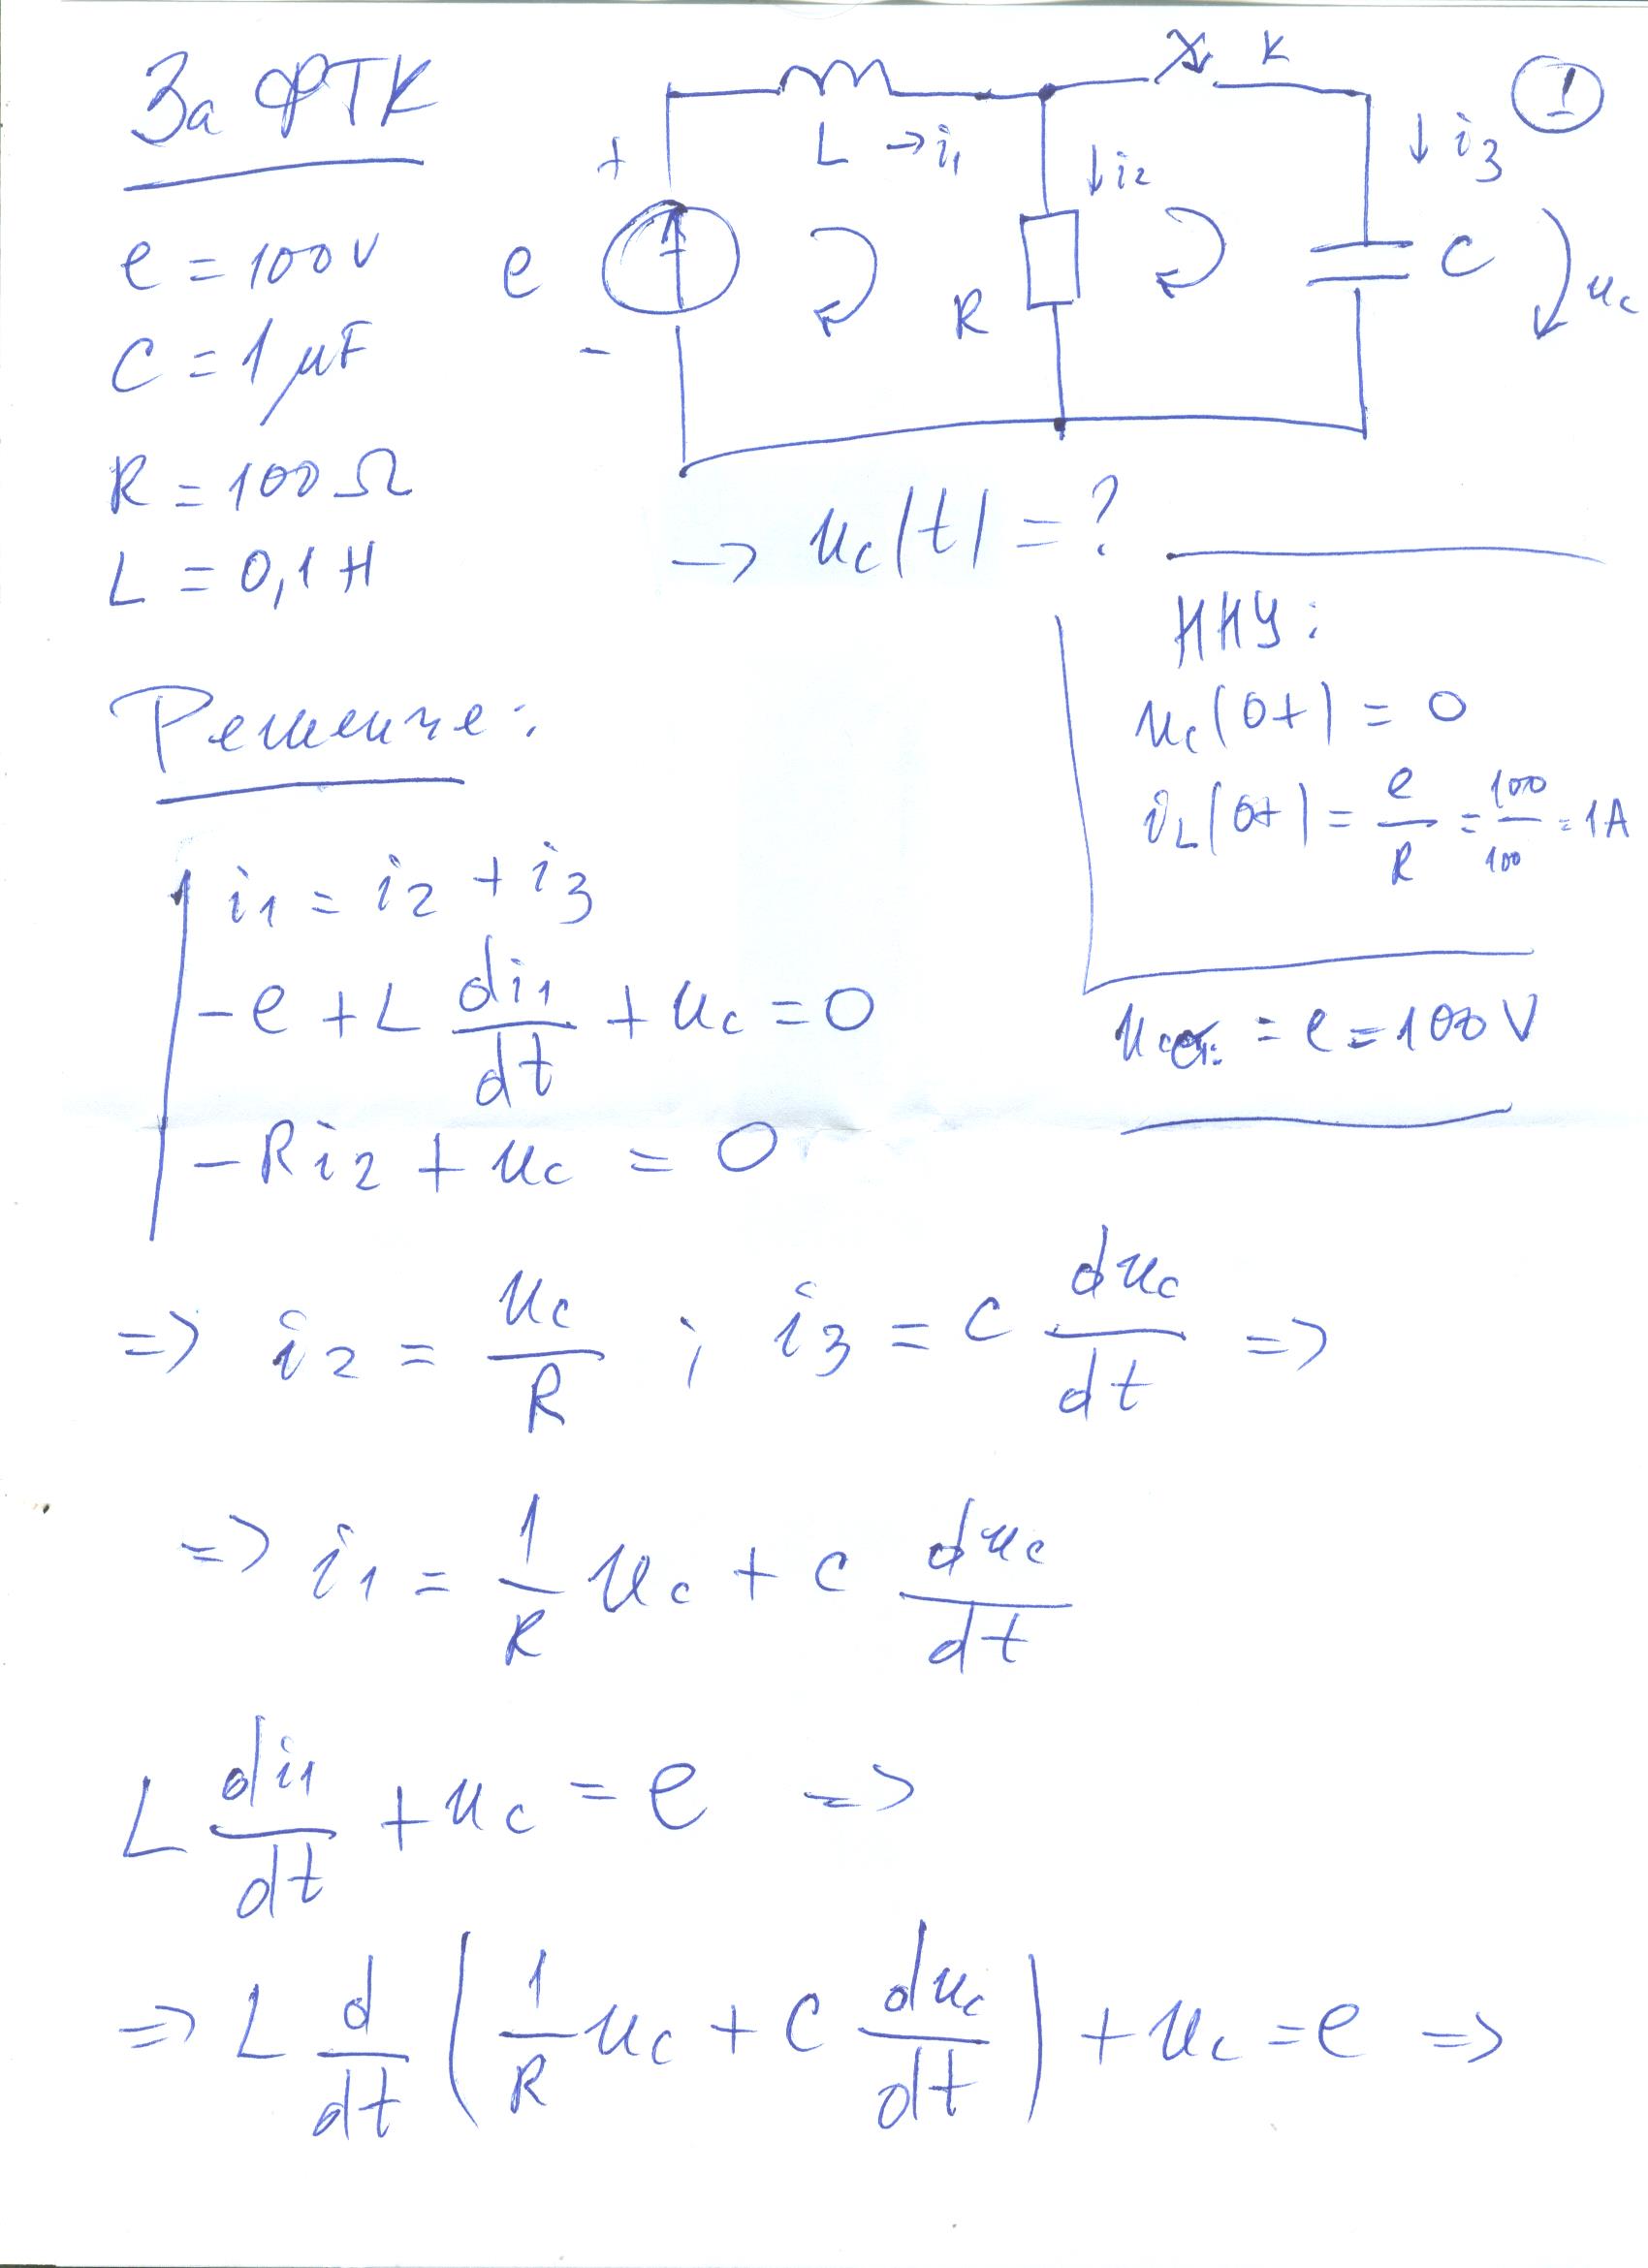 За ФТК
①
e = 100V
C = 1 μF
R = 100 Ω
L = 0,1 H
+ L → i₁ ↓ i₂ K ↓ i₃
e R C u_c
-
→ u_c(t) = ?
ННУ:
u_c(0+) = 0
i_L(0+) = e/R = 100/100 = 1A
= e = 100 V
Решение:
i₁ = i₂ + i₃
-e + L di₁/dt + u_c = 0
-Ri₂ + u_c = 0
=> i₂ = u_c/R ; i₃ = C du_c/dt =>
=> i₁ = 1/R u_c + C du_c/dt
L di₁/dt + u_c = e =>
=> L d/dt (1/R u_c + C du_c/dt) + u_c = e =>